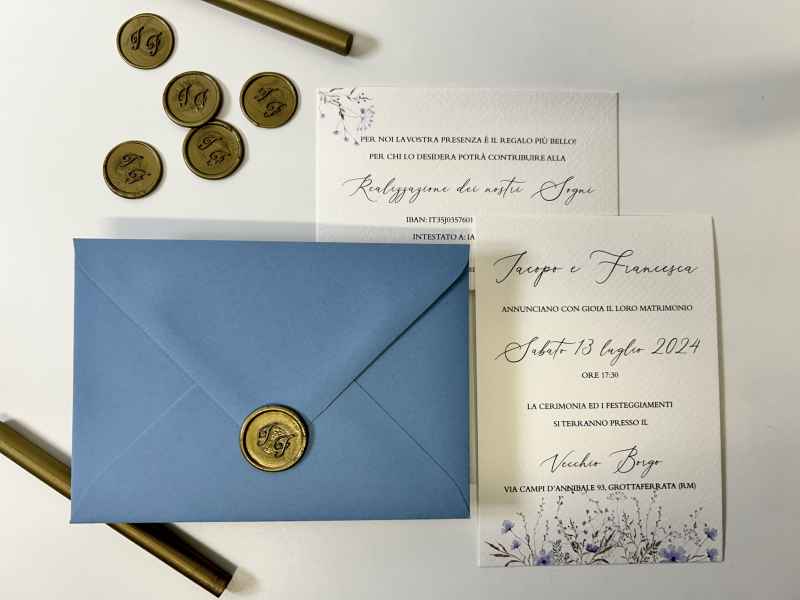 PER NOI LA VOSTRA PRESENZA È IL REGALO PIÙ BELLO!
PER CHI LO DESIDERA POTRÀ CONTRIBUIRE ALLA
Realizzazione dei nostri Sogni
IBAN: IT35J0357601
INTESTATO A: IA
Iacopo e Francesca
ANNUNCIANO CON GIOIA IL LORO MATRIMONIO
Sabato 13 luglio 2024
ORE 17:30
LA CERIMONIA ED I FESTEGGIAMENTI
SI TERRANNO PRESSO IL
Vecchio Borgo
VIA CAMPI D'ANNIBALE 93, GROTTAFERRATA (RM)